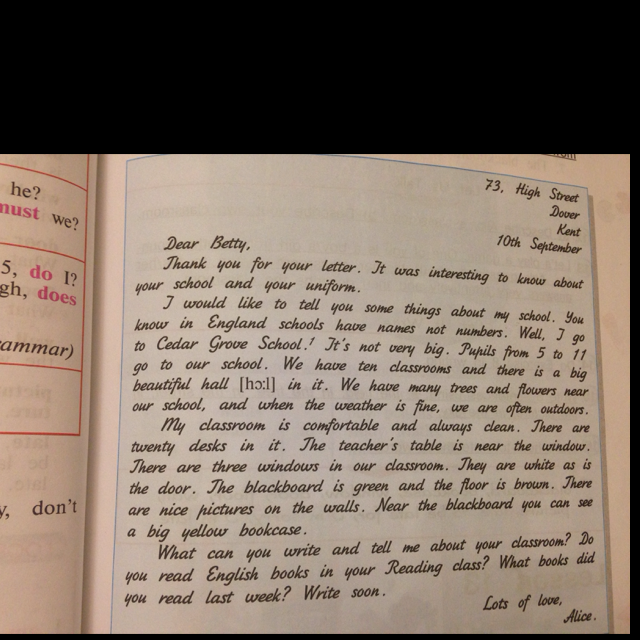 he?
must we?
5, do I?
gh, does
ammar)
y, don't
73, High Street
Dover
Kent
10th September
Dear Betty,
Thank you for your letter. It was interesting to know about
your school and your uniform.
I would like to tell you some things about my school. You
know in England schools have names not numbers. Well, I go
to Cedar Grove School.¹ It's not very big. Pupils from 5 to 11
go to our school. We have ten classrooms and there is a big
beautiful hall [hɔ:l] in it. We have many trees and flowers near
our school, and when the weather is fine, we are often outdoors.
My classroom is comfortable and always clean. There are
twenty desks in it. The teacher's table is near the window.
There are three windows in our classroom. They are white as is
the door. The blackboard is green and the floor is brown. There
are nice pictures on the walls. Near the blackboard you can see
a big yellow bookcase.
What can you write and tell me about your classroom? Do
you read English books in your Reading class? What books did
you read last week? Write soon.
Lots of love,
Alice.